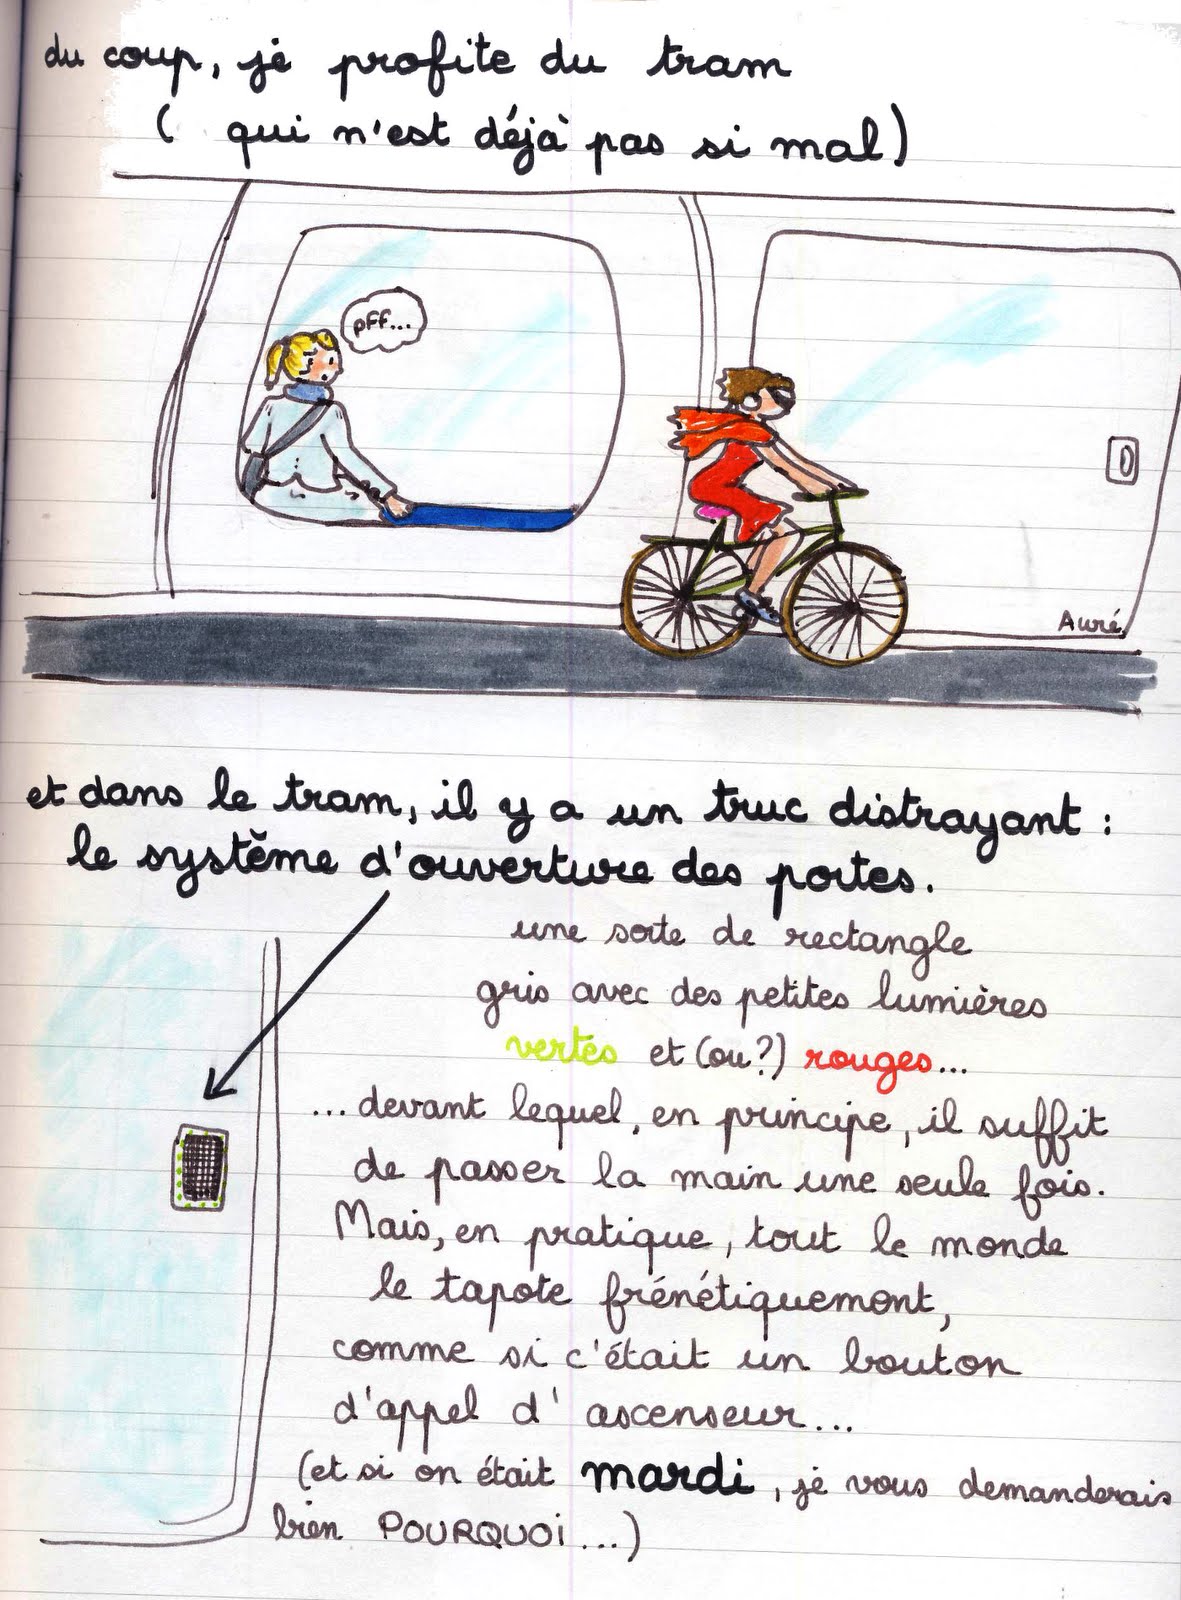 du coup, je profite du tram
( qui n'est déjà pas si mal)
pff...
Auré
et dans le tram, il y a un truc distrayant :
le système d'ouverture des portes.
une sorte de rectangle
gris avec des petites lumières
vertes et (ou?) rouges...
...devant lequel, en principe, il suffit
de passer la main une seule fois.
Mais, en pratique, tout le monde
le tapote frénétiquement,
comme si c'était un bouton
d'appel d'ascenseur...
(et si on était mardi, je vous demanderais
bien POURQUOI...)